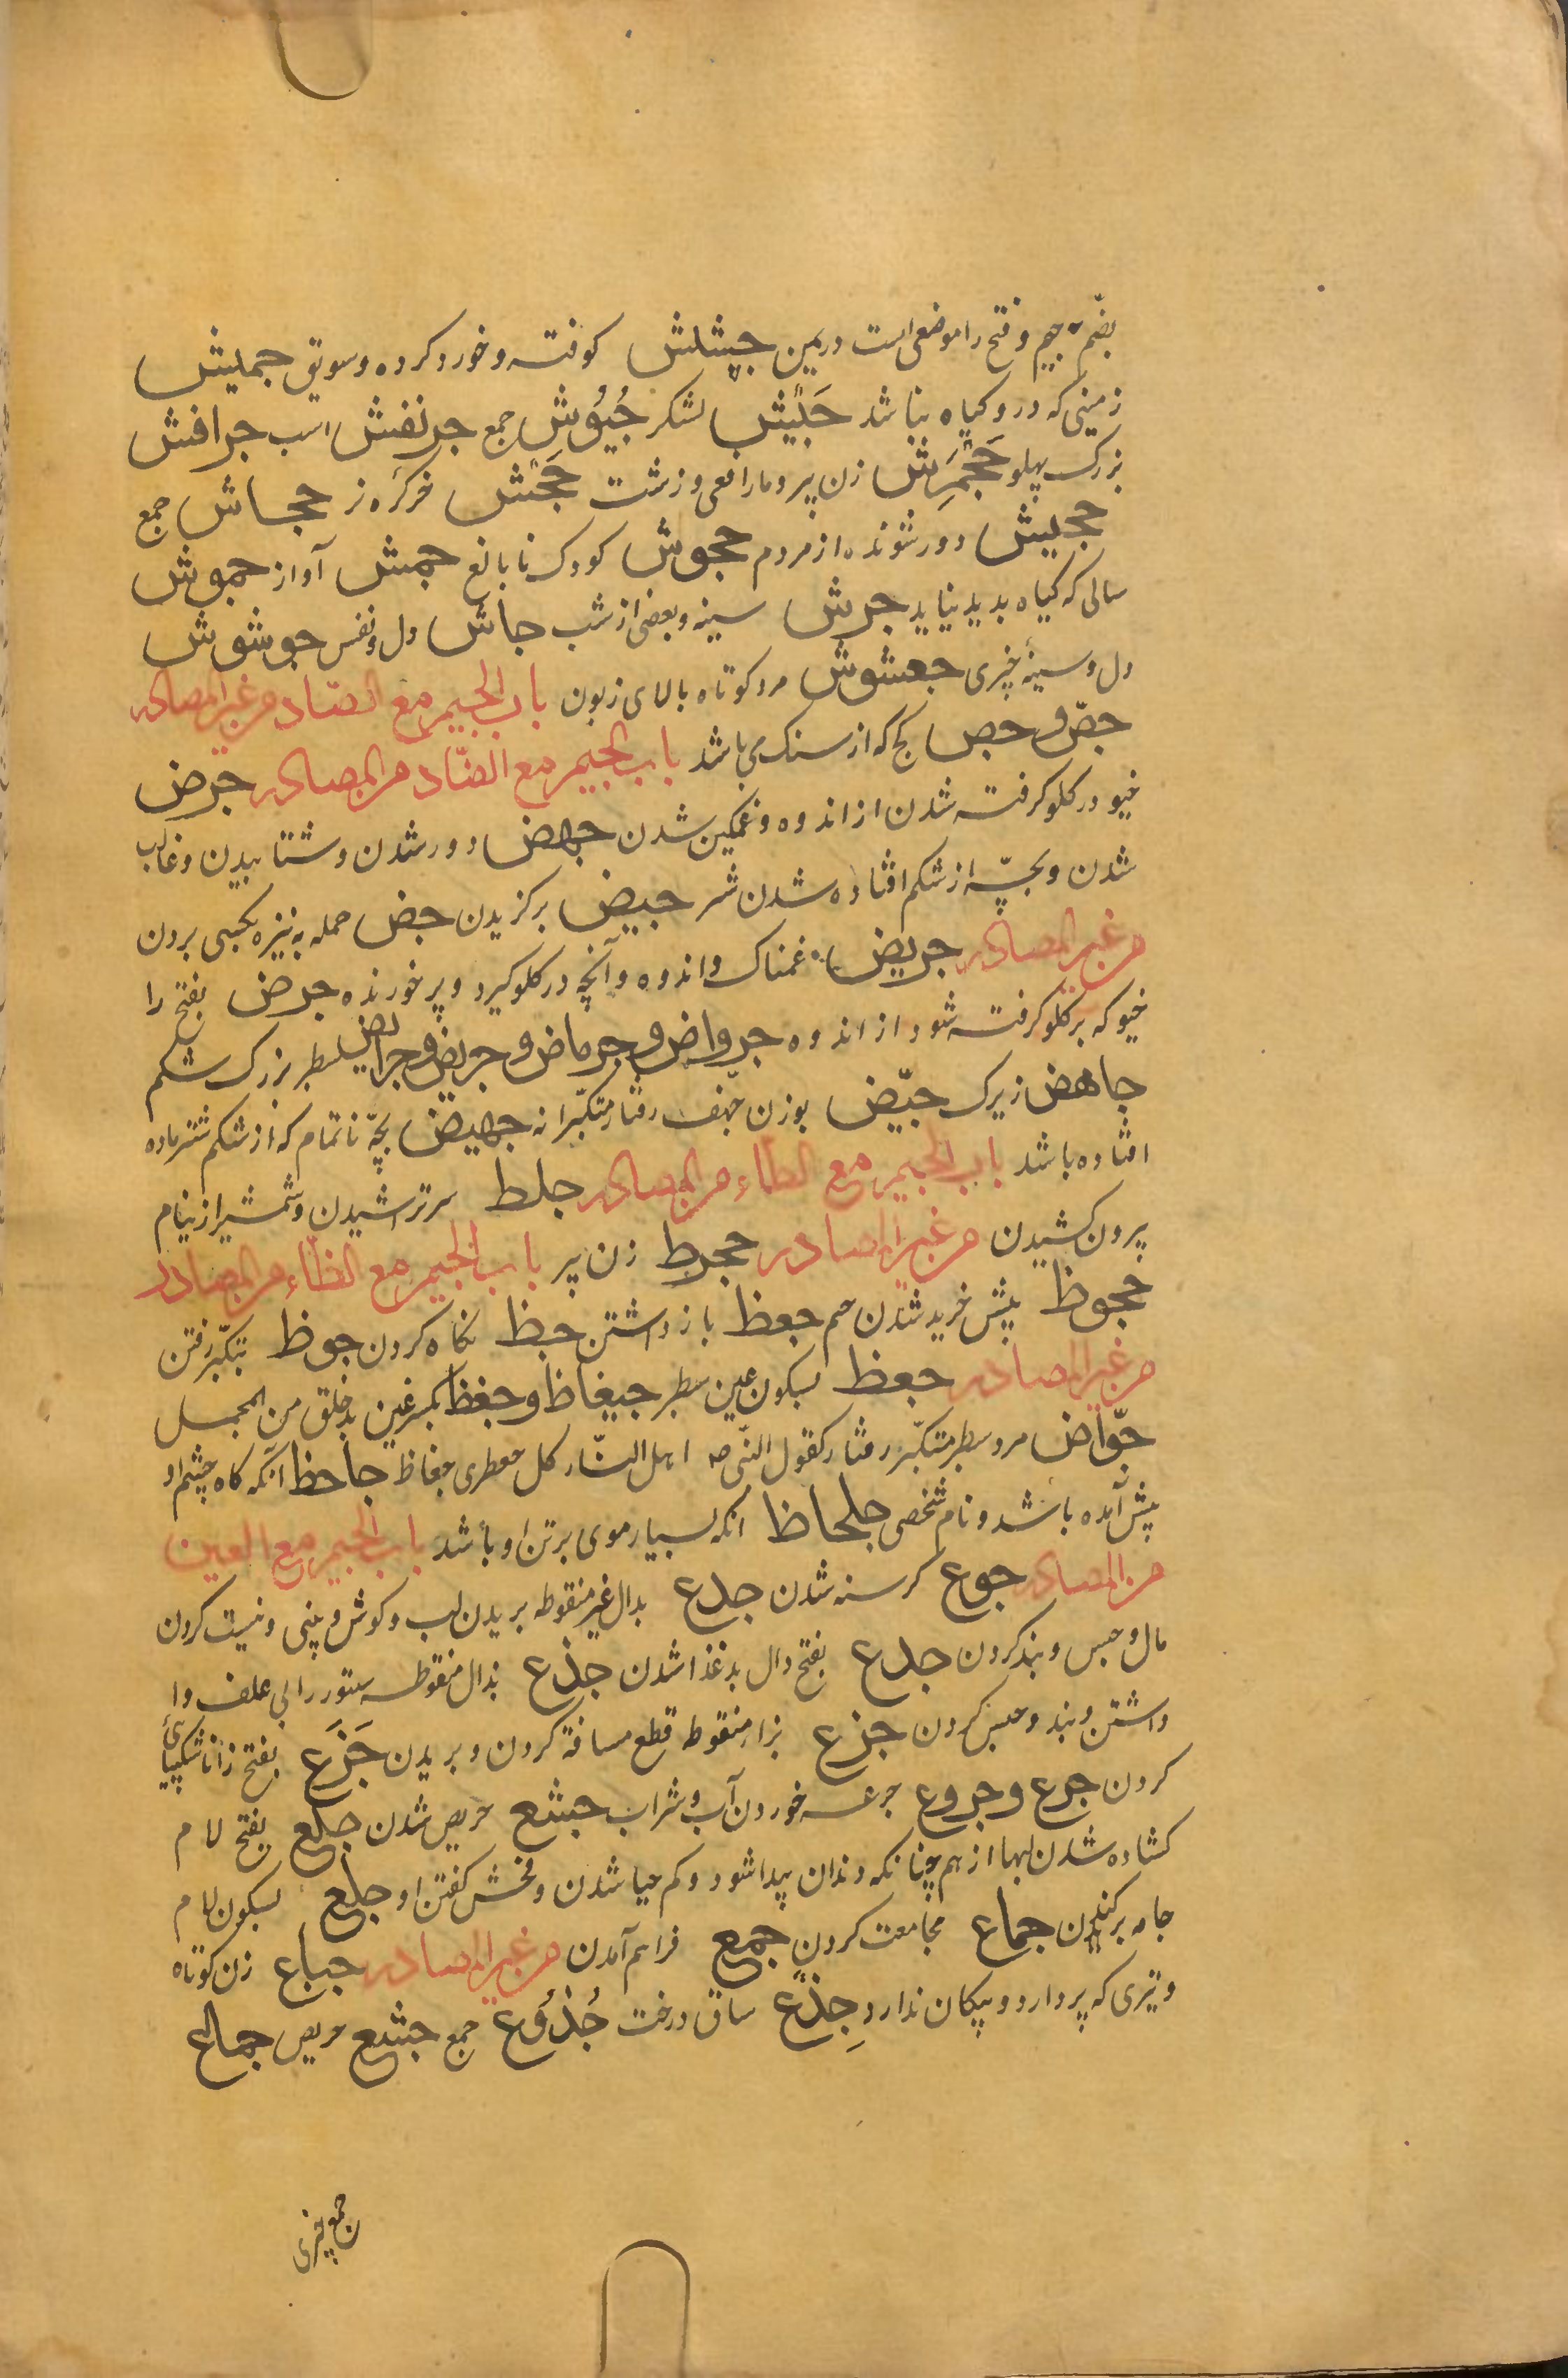 بضمّ جیم و فتح را موضعی است در یمن جیشلش کوفته و خورد کرده و سویق جمیش
زمینی که درو کیاه نباشد جَیْش لشکر جُیُوش جمع جرنفش اسب جرافش
بزرک پهلو جَحْمَرِش زن پیر و مار افعی و زشت جَحْش خر کرّه نر جحاش جمع
جحیش دور شونده از مردم جحوش کودک نا بالغ جمش آواز جموش
سالی که کیاه بدید نیاید جرش سینه و بعضی از شب جاش دل و نفس جوشوش
دل و سینهٔ چیزی جعشوش مرد کوتاه بالای زبون باب الجیم مع الصّاد من غیر المصادر
جصّ و جص کج که از سنک می باشد باب الجیم مع الضّاد من المصادر جرض
خیو در کلو کرفته شدن از اندوه و غمکین شدن جهض دور شدن و شتابیدن و غالب
شدن و بچّه از شکم افتاده شدن شتر جیض برکزیدن جض حمله به نیزه بکسی بردن
من غیر المصادر جریض غمناک و اندوه و آنچه در کلو کیرد و پر خورنده جرض بفتح را
خیو که بر کلو کرفته شود از اندوه جرواض و جرماض و جریض و جرایض سطبر بزرک شکم
جاهض زیرک جیّض بوزن هجفّ رفتار متکبّرانه جهیض بچّهٔ ناتمام که از شکم شتر ماده
افتاده باشد باب الجیم مع الطاء من المصادر جلط سر تراشیدن و شمشیر از نیام
بیرون کشیدن من غیر المصادر جحرط زن پیر باب الجیم مع الظّاء من المصادر
جحوظ بیش خرید شدن چشم جعظ باز داشتن جظ نکاه کردن جوظ بتکبّر رفتن
من غیر المصادر جعظ بسکون عین سطبر جیغاظ و جغظ بکسر غین بدخلق من المجمل
جوّاض مرد سطبر متکبّر رفتار کقول النّبی صه اهل النّار کل جعظری جغاظ جاحظ آنکه کاه چشم او
پیش آمده باشد و نام شخصی جلحاظ آنکه بسیار موی بر تن او باشد باب الجیم مع العین
من المصادر جوع کرسنه شدن جدع بدال غیر منقوطه بریدن لب و کوش و بینی و نیست کردن
مال و حبس و بند کردن جدع بفتح دال بد غذا شدن جذع بذال منقوطه ستور را بی علف وا
داشتن و بند و حبس کردن جزع بزاء منقوطه قطع مسافة کردن و بریدن جَزَع بفتح زا ناشکیبائی
کردن جرع و جروع جرعه خوردن آب و شراب جشع حریص شدن جلع بفتح لام
کشاده شدن لبها از هم چنانکه دندان پیدا شود و کم حیا شدن و فحش کفتن او جلع بسکون لام
جامه برکندن جماع مجامعت کردن جمع فراهم آمدن من غیر المصادر جباع زن کوتاه
و تیری که پر دارد و پیکان ندارد جِذْع ساق درخت جُذُوع جمع جشع حریص جماع
جمع چیزی